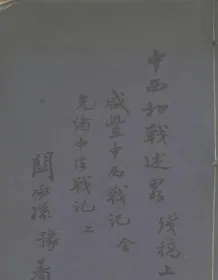 中西和戰述畧 稿上
咸豐中西戰記 全
光緒中法戰記 上
孫 著